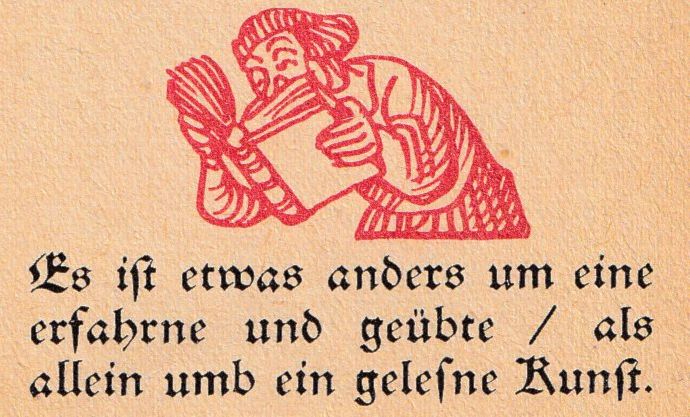 Es iſt etwas anders um eine
erfahrne und geübte / als
allein umb ein geleſne Kunſt.